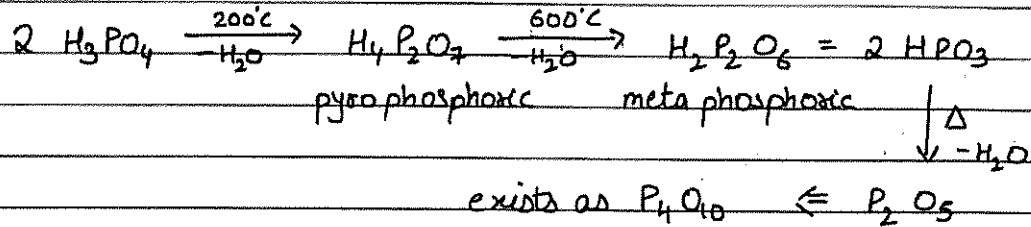 2 H₃PO₄ —200°C/−H₂O→ H₄P₂O₇ —600°C/−H₂O→ H₂P₂O₆ = 2 HPO₃
pyrophosphoric meta phosphoric ↓ Δ
−H₂O
exists as P₄O₁₀ ⇐ P₂O₅